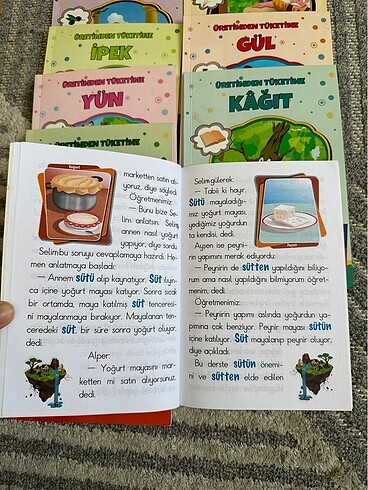 ÜRETİMDEN TÜKETİME
İPEK
ÜRETİMDEN TÜKETİME
GÜL
ÜRETİMDEN TÜKETİME
YÜN
ÜRETİMDEN TÜKETİME
KÂĞIT
ÜRETİMDEN TÜKETİME
Yoğurt
marketten satın alı-
yoruz, diye söyledi.
Öğretmenimiz:
— Bunu bize Se-
lim anlatsın. Selim
annen nasıl yoğurt
yapıyor, diye sordu.
Selim bu soruyu cevaplamaya hazırdı. He-
men anlatmaya başladı:
— Annem sütü alıp kaynatıyor. Süt ılıyın-
ca içine yoğurt mayası katıyor. Sonra sıcak
bir ortamda, maya katılmış süt tenceresi-
ni mayalanmaya bırakıyor. Mayalanan ten-
ceredeki süt, bir süre sonra yoğurt oluyor,
dedi.
Alper:
— Yoğurt mayasını mar-
ketten mi satın alıyorsunuz,
dedi.
Selim gülerek:
— Tabii ki hayır.
Sütü mayaladığı-
mız yoğurt mayası,
yediğimiz yoğurdun
ta kendisi, dedi.
Aysen ise peyni-
rin yapımını merak ediyordu:
— Peynirin de sütten yapıldığını biliyo-
rum ama nasıl yapıldığını bilmiyorum öğret-
menim, dedi.
Öğretmenimiz:
— Peynirin yapımı aslında yoğurdun ya-
pımına çok benziyor. Peynir mayası sütün
içine katılıyor. Süt mayalanıp peynir oluyor,
diye açıkladı.
Bu derste sütün önemi-
ni ve sütten elde edilen
Peynir